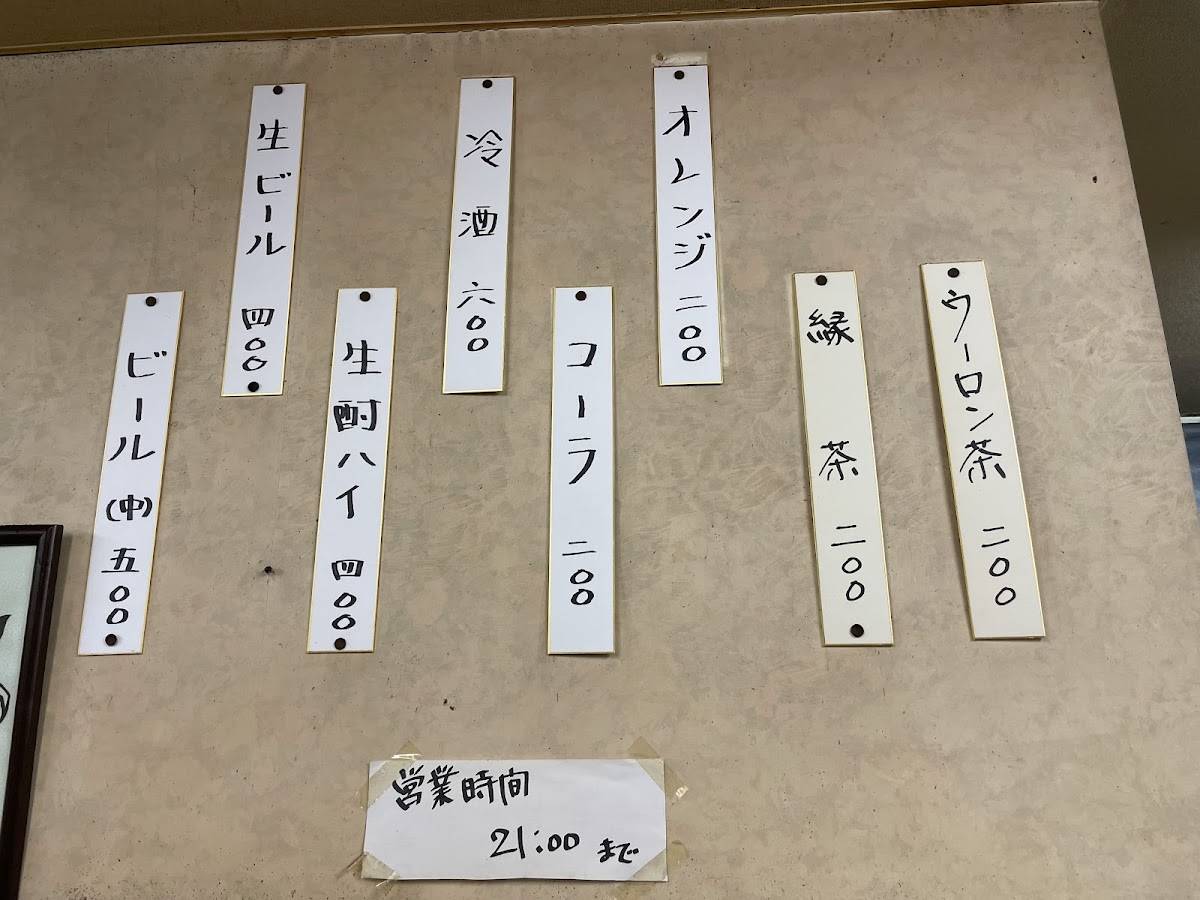 ウーロン茶 二〇〇
縁茶 二〇〇
オレンジ 二〇〇
コーラ 二〇〇
冷酒 六〇〇
生酎ハイ 四〇〇
生ビール 四〇〇
ビール(中) 五〇〇
営業時間
21:00 まで